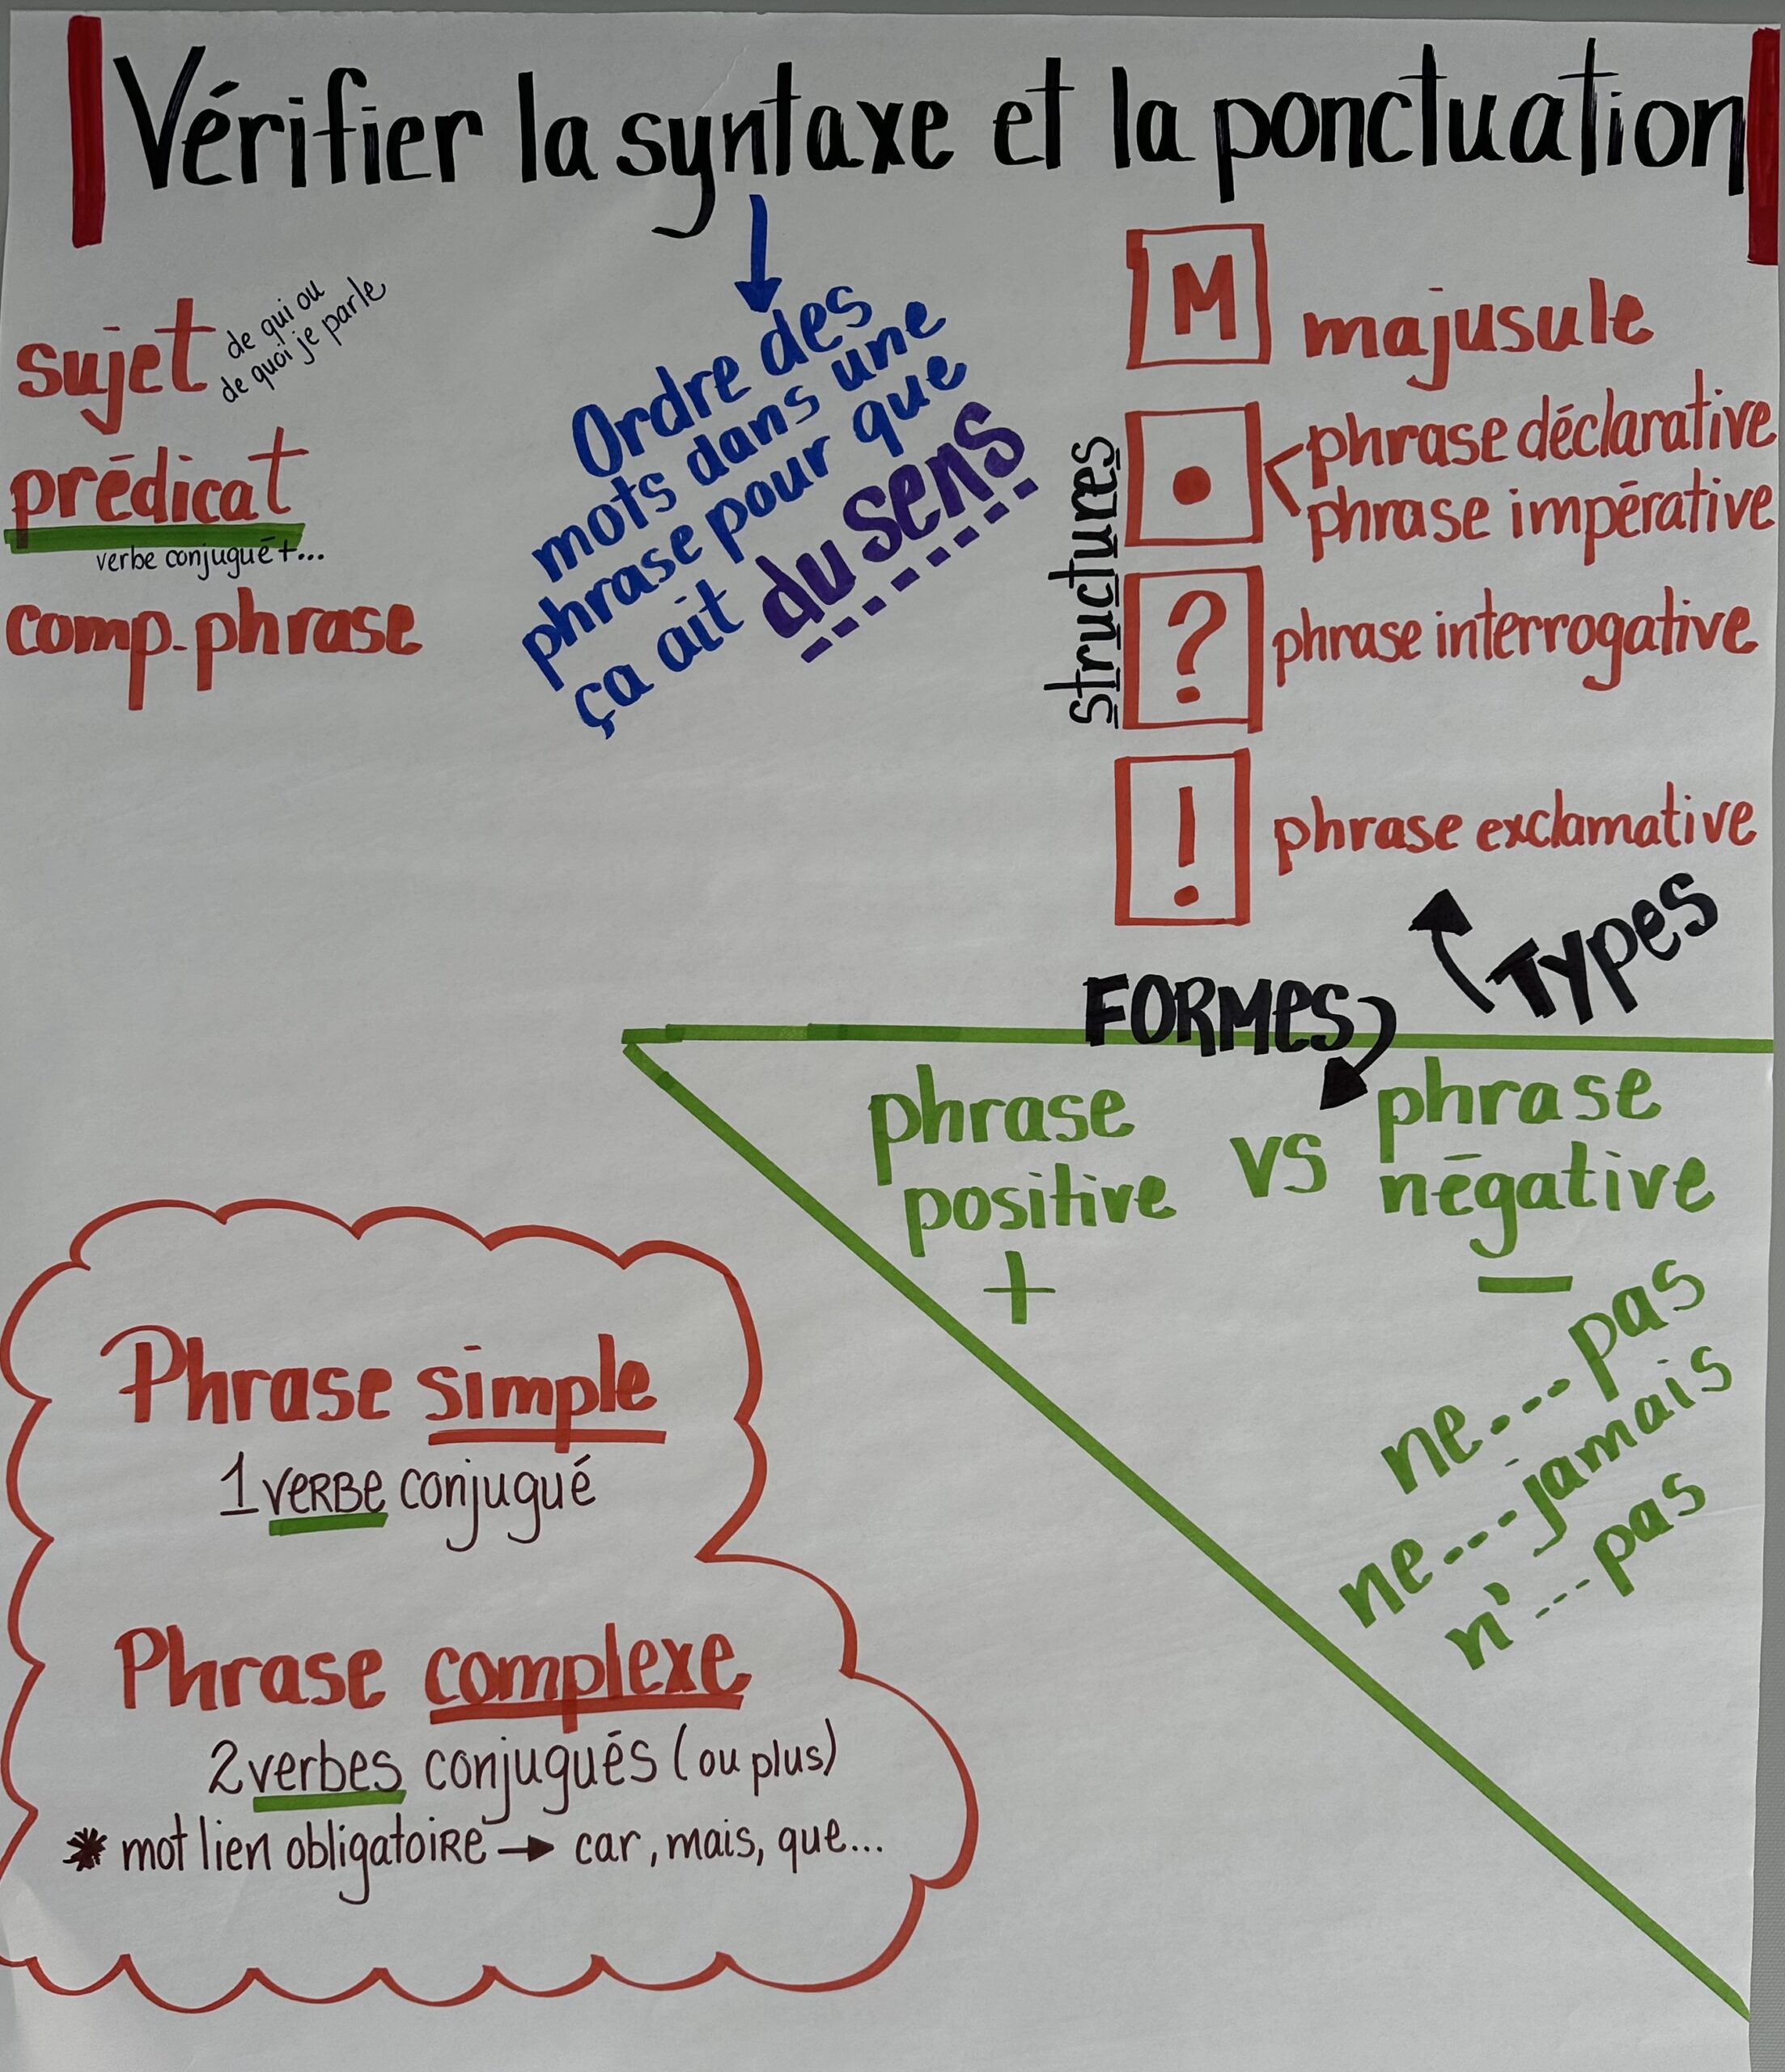 Vérifier la syntaxe et la ponctuation
sujet
de qui ou
de quoi je parle
prédicat
verbe conjugué +...
comp. phrase
Ordre des
mots dans une
phrase pour que
ça ait du sens
structures
M majusule
• phrase déclarative
phrase impérative
? phrase interrogative
! phrase exclamative
TYPes
FORMes
phrase
positive
+
vs
phrase
négative
—
ne---pas
ne---jamais
n'---pas
Phrase simple
1 veRBe conjugué
Phrase complexe
2 verbes conjugués (ou plus)
* mot lien obligatoiRE → car, mais, que...